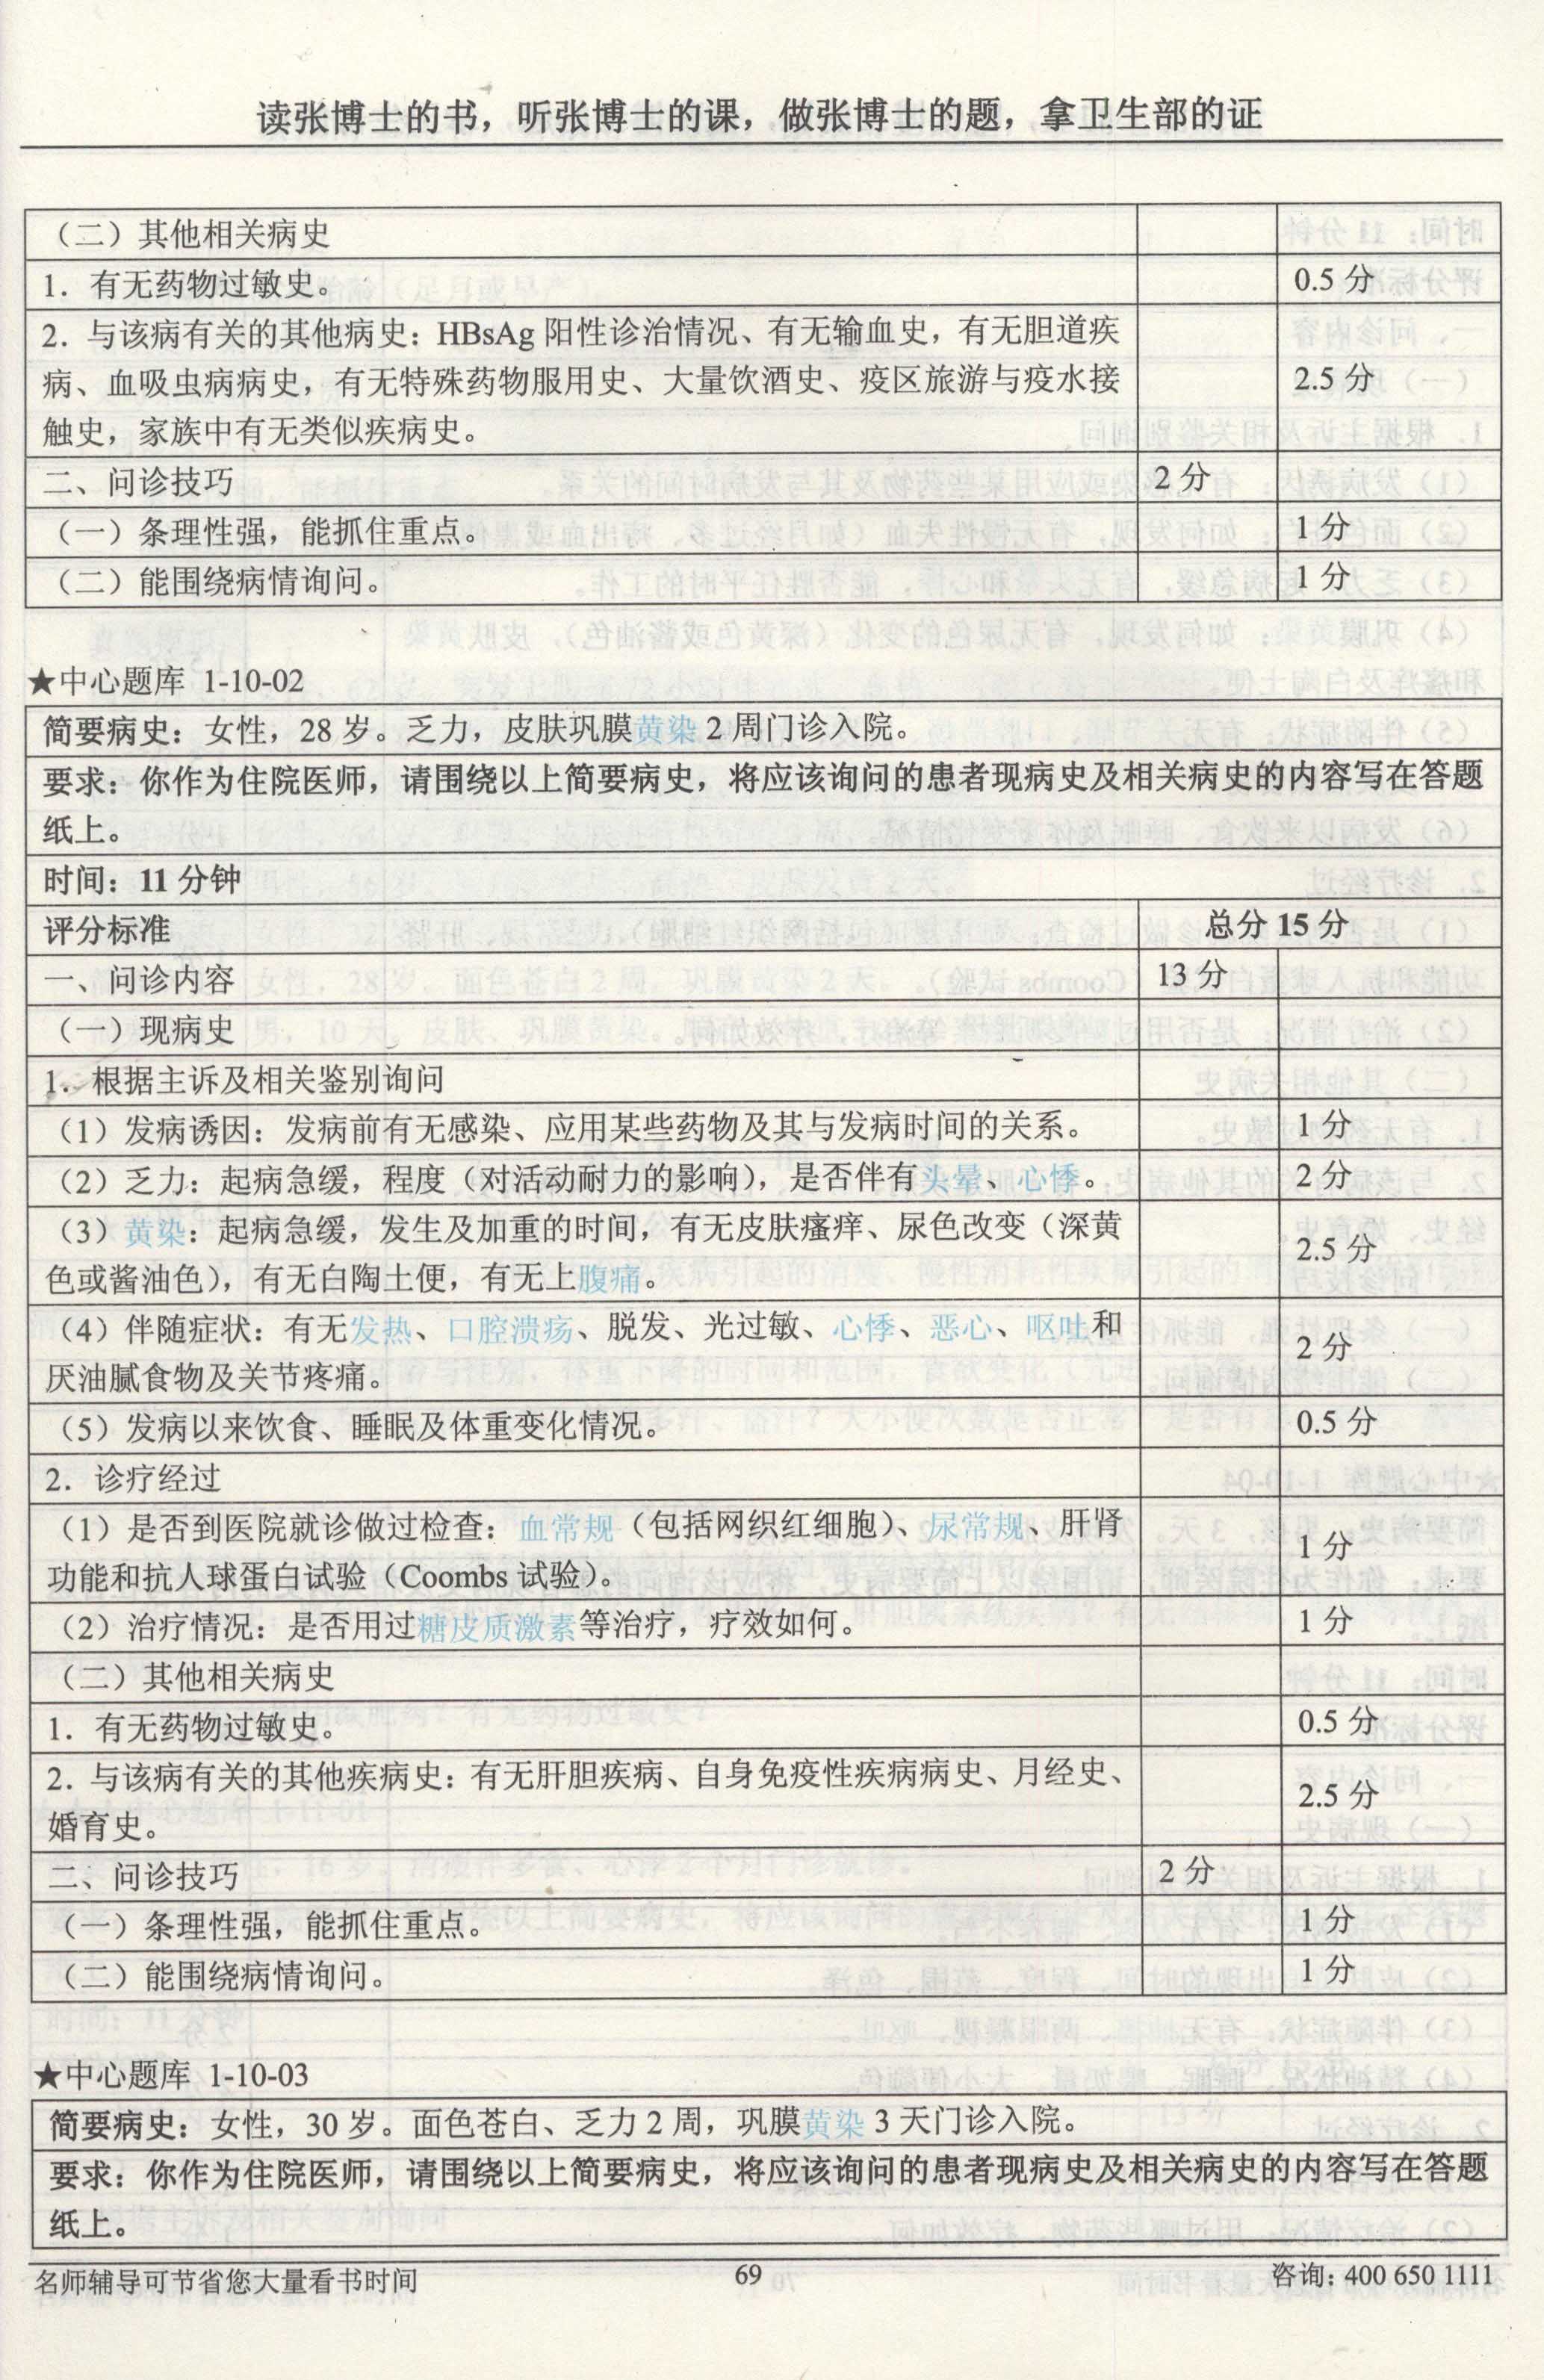 读张博士的书，听张博士的课，做张博士的题，拿卫生部的证
（二）其他相关病史
1．有无药物过敏史。 0.5 分
2．与该病有关的其他病史：HBsAg 阳性诊治情况、有无输血史，有无胆道疾
病、血吸虫病病史，有无特殊药物服用史、大量饮酒史、疫区旅游与疫水接 2.5 分
触史，家族中有无类似疾病史。
二、问诊技巧 2 分
（一）条理性强，能抓住重点。 1 分
（二）能围绕病情询问。 1 分
★中心题库 1-10-02
简要病史：女性，28 岁。乏力，皮肤巩膜黄染 2 周门诊入院。
要求：你作为住院医师，请围绕以上简要病史，将应该询问的患者现病史及相关病史的内容写在答题
纸上。
时间：11 分钟
评分标准 总分 15 分
一、问诊内容 13 分
（一）现病史
1．根据主诉及相关鉴别询问
（1）发病诱因：发病前有无感染、应用某些药物及其与发病时间的关系。 1 分
（2）乏力：起病急缓，程度（对活动耐力的影响），是否伴有头晕、心悸。 2 分
（3）黄染：起病急缓，发生及加重的时间，有无皮肤瘙痒、尿色改变（深黄
色或酱油色），有无白陶土便，有无上腹痛。 2.5 分
（4）伴随症状：有无发热、口腔溃疡、脱发、光过敏、心悸、恶心、呕吐和
厌油腻食物及关节疼痛。 2 分
（5）发病以来饮食、睡眠及体重变化情况。 0.5 分
2．诊疗经过
（1）是否到医院就诊做过检查：血常规（包括网织红细胞）、尿常规、肝肾
功能和抗人球蛋白试验（Coombs 试验）。 1 分
（2）治疗情况：是否用过糖皮质激素等治疗，疗效如何。 1 分
（二）其他相关病史
1．有无药物过敏史。 0.5 分
2．与该病有关的其他疾病史：有无肝胆疾病、自身免疫性疾病病史、月经史、
婚育史。 2.5 分
二、问诊技巧 2 分
（一）条理性强，能抓住重点。 1 分
（二）能围绕病情询问。 1 分
★中心题库 1-10-03
简要病史：女性，30 岁。面色苍白、乏力 2 周，巩膜黄染 3 天门诊入院。
要求：你作为住院医师，请围绕以上简要病史，将应该询问的患者现病史及相关病史的内容写在答题
纸上。
名师辅导可节省您大量看书时间 69 咨询：400 650 1111